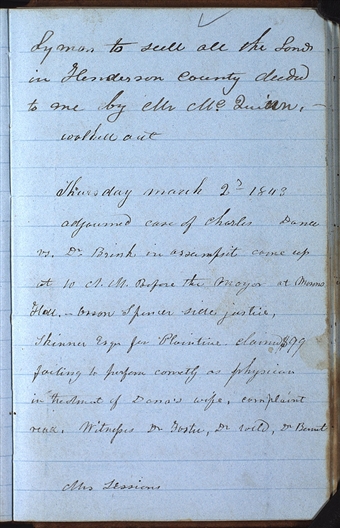 Lyman to sell all the Lands
in Henderson County deeded
to me by Mr McQuinn, —
walked out
Thursday march 2d 1843
adjourned case of Charles Dana
vs. Dr Brink in assumpsit came up
at 10 A.M. Before the Mayor at
Hall. — Orson Spencer side justice,
Skinner Esqr for Plaintive claimd $99
failing to perform correctly as physician
in treatment of Dana's wife, complaint
read. Witnesses Dr Foster, Dr weld, Dr Bennet
Mrs Sessions